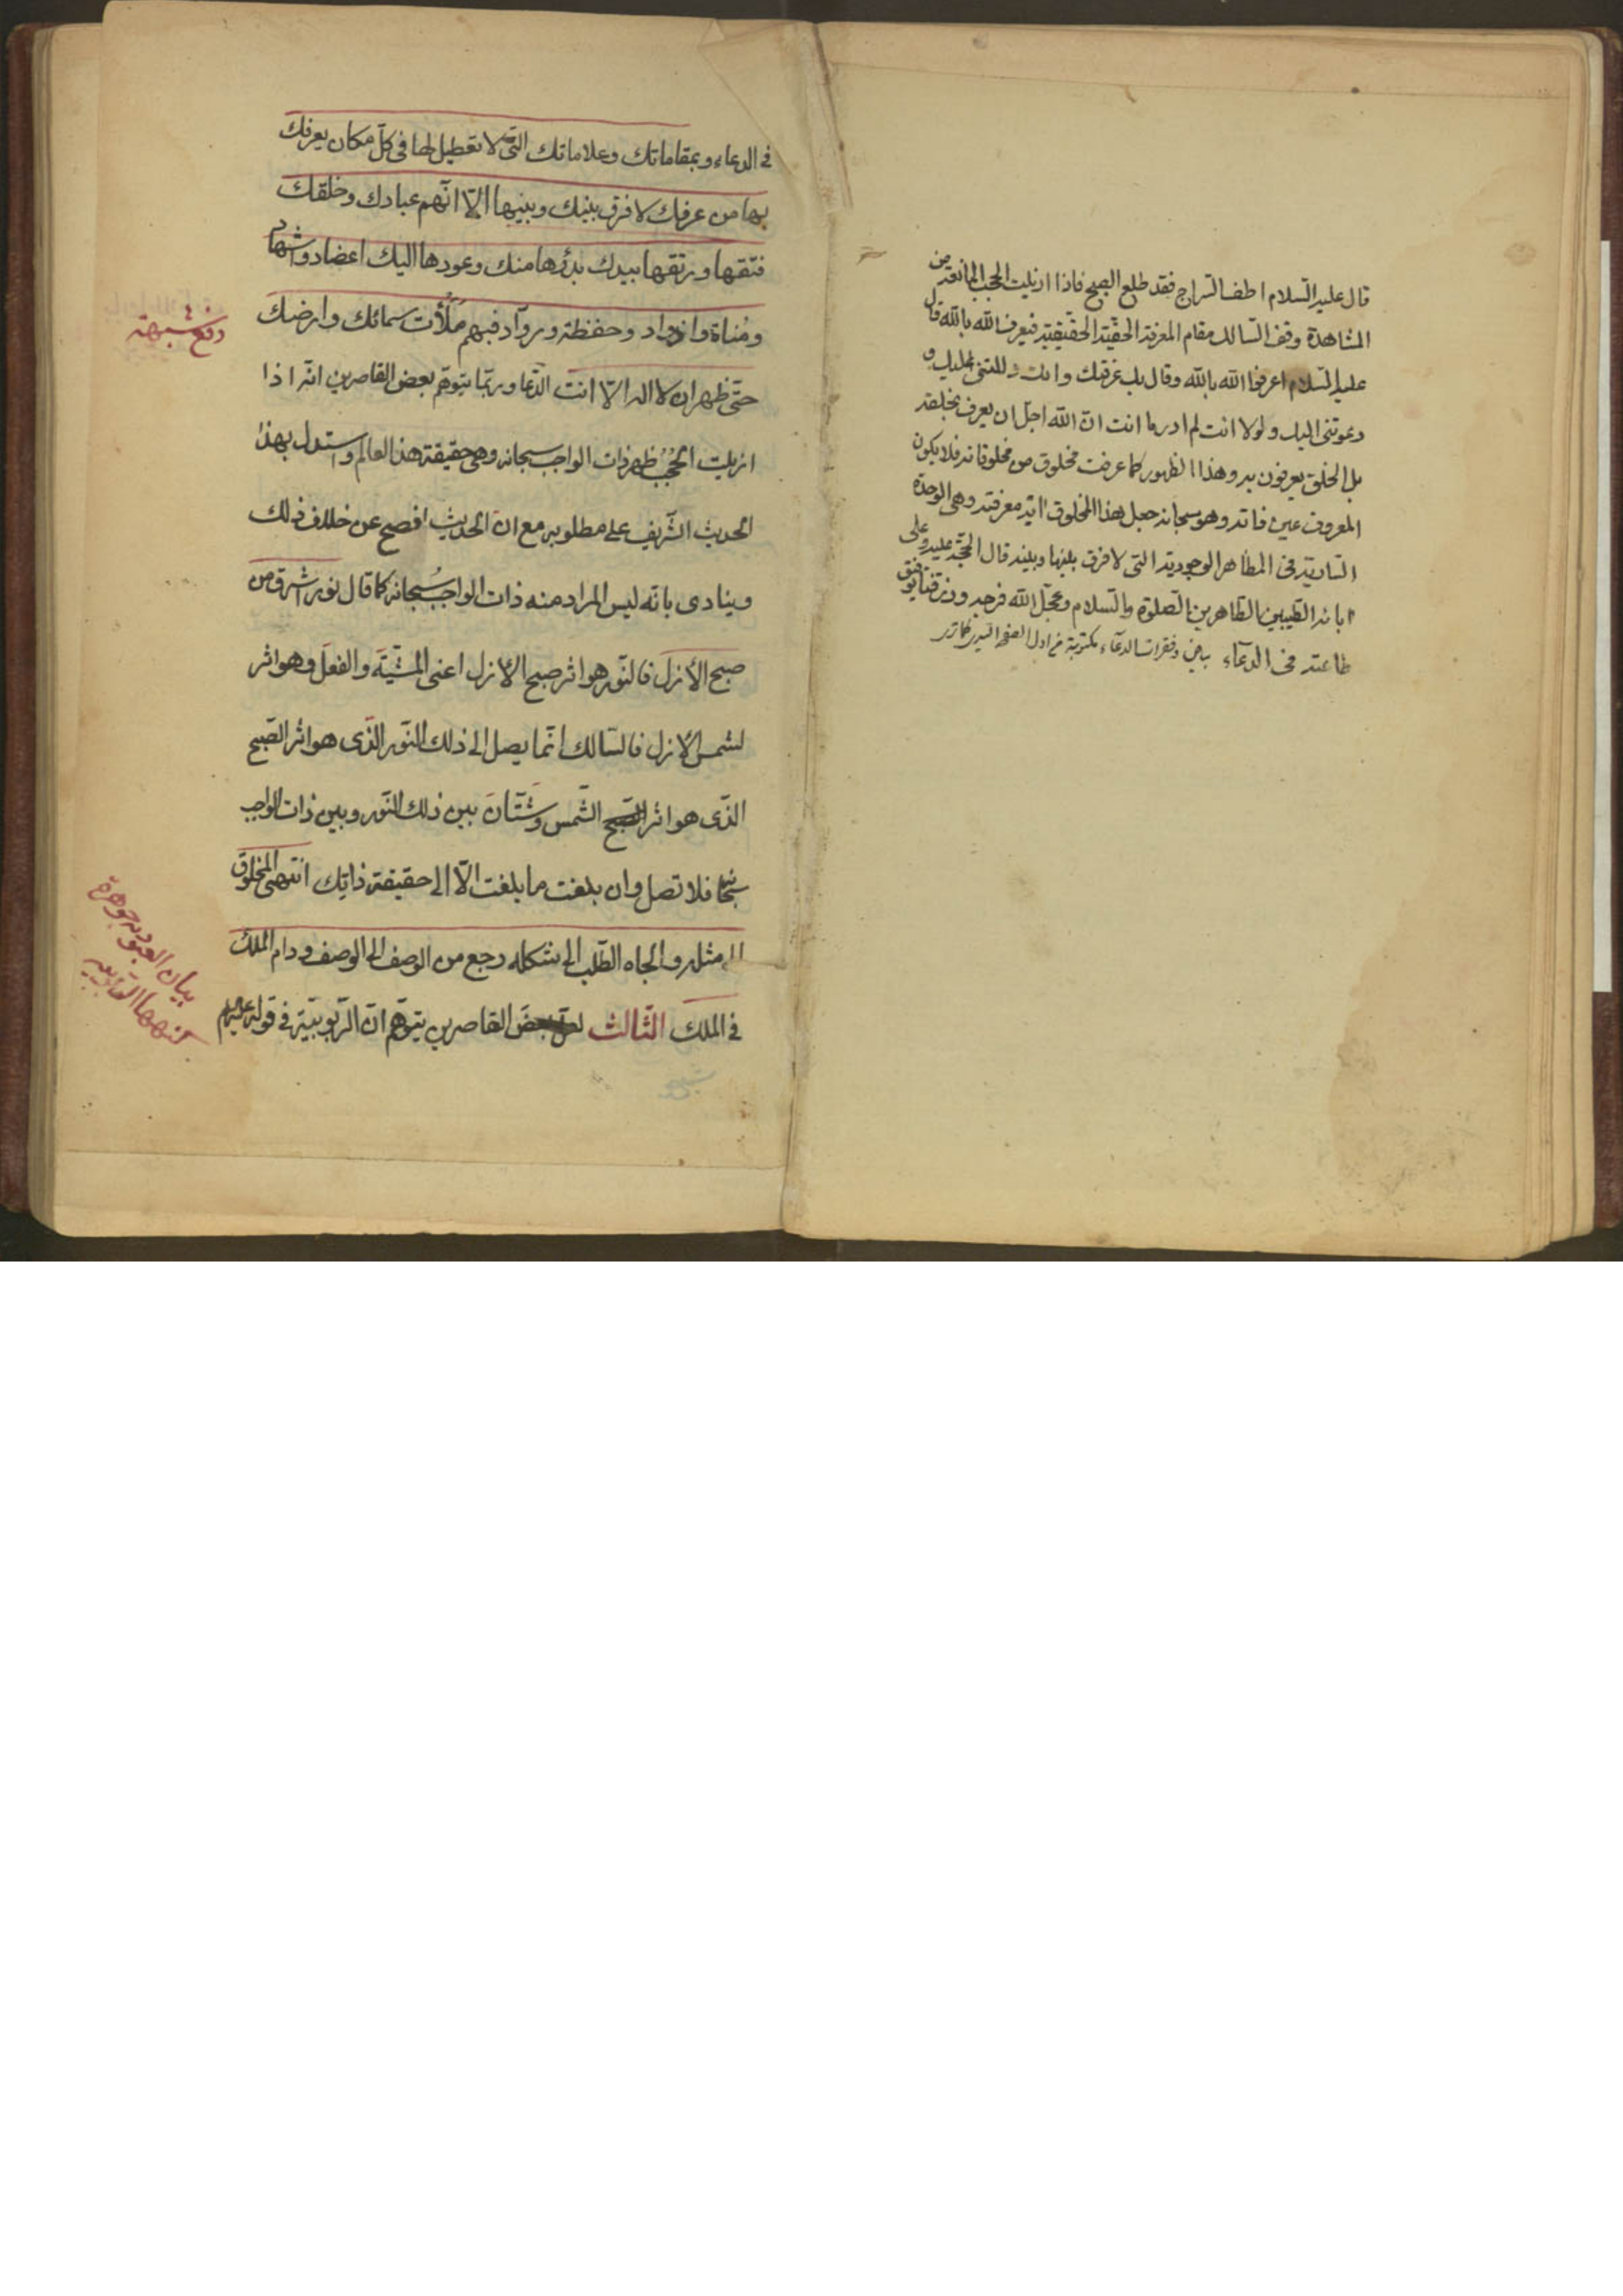 قال عليه السّلام اطف السّراج فقد طلع الصبح فاذا ازيلت الحجب المانعة من
المشاهدة وقف السّالك مقام المعرفة الحقيّة الحقيقيّة فيعرف الله بالله قال
عليه السّلام اعرفوا الله بالله وقال بك عرفتك وانت دللتنى عليك و
دعوتنى اليك ولولا انت لم ادر ما انت انّ الله اجلّ ان يعرف بخلقه
بل الخلق يعرفون به وهذا الظهور كما عرفت مخلوق من مخلوقاته فلا يكون
المعروف عين ذاته وهو سبحانه جعل هذا المخلوق اية معرفته وهى الوحدة
السّارية فى المظاهر الوجودية التى لا فرق بينها وبينه قال الحجّة عليه وعلى
ابائه الطّيبين الطّاهرين الصلوة والسّلام وعجّل الله فرجه ورزقنا توفيق
طاعته فى الدّعاء وفقرات الدّعاء مكتوبة فى اول الصفحة
فى الدعاء وبمقاماتك وعلاماتك الّتى لا تعطيل لها فى كلّ مكان يعرفك
بها من عرفك لا فرق بينك وبينها الّا انّهم عبادك وخلقك
فتقها ورتقها بيدك بدؤها منك وعودها اليك اعضاد واشهاد
ومُناة واذواد وحفظة وروّاد فبهم مَلَأْت سمائك وارضك
حتّى ظهر ان لا اله الّا انت الدّعا وربّما يتوهّم بعض القاصرين انّه اذا
ازيلت الحُجُب ظهر ذات الواجب سبحانه وهى حقيقة هذا العالم واستدل بهذا
الحديث الشّريف على مطلوبه مع انّ الحديث افصح عن خلاف ذلك
وينادى بانّه ليس المراد منه ذات الواجب سُبحانه كما قال نور اشرق من
صبح الأزل فالنّور هو اثر صبح الازل اعنى المشيّة والفعل وهو اثر
لشمس الازل فالسّالك انّما يصل الى ذلك النّور الّذى هو اثر الصّبح
الّذى هو اثر الشّمس وشَتّانَ بين ذلك النّور وبين ذات الواجب
سبحانه فلا تصل وان بلغت ما بلغت الّا الى حقيقة ذاتِك انتهى المخلوق
الى مثله والجاه الطّلب الى شكله رجع من الوصف الى الوصف ودام الملك
فى الملك الثّالث بعض القاصرين يتوهّم انّ الرّبوبيّة فى قوله عليه السلام
دفع شبهة
بيان العبودية جوهرة
كنهها الربوبية